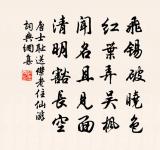 飛錫破曉色
紅葉舞吳楓
聞名且見面
清明豁長空
唐士耻送傑老住仙游
詞典網